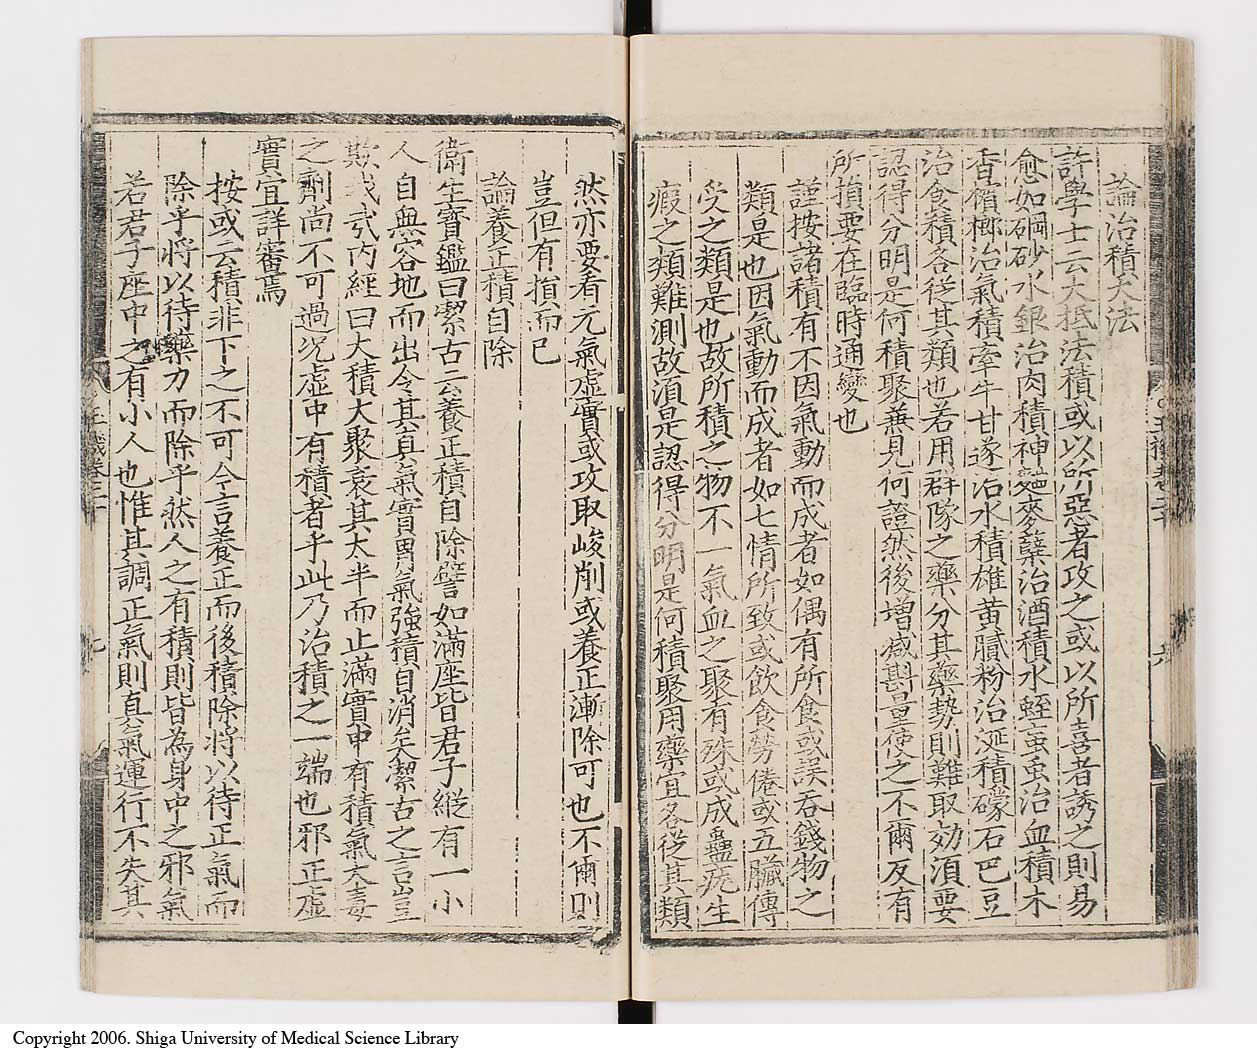 論治積大法
許學士云大抵法積或以所惡者攻之或以所喜者誘之則易
愈如硇砂水銀治肉積神麯麥蘖治酒積水蛭䖟虫治血積木
香檳榔治氣積牽牛甘遂治水積雄黃膩粉治涎積礞石巴豆
治食積各從其類也若用群隊之藥分其藥勢則難取効須要
認得分明是何積聚兼見何證然後增減斟量使之不爾反有
所損要在臨時通變也
謹按諸積有不因氣動而成者如偶有所食或誤吞錢物之
類是也因氣動而成者如七情所致或飲食勞倦或五臟傳
受之類是也故所積之物不一氣血之聚有殊或成蠱疣生
瘕之類難測故須是認得分明是何積聚用藥宜各從其類
然亦要看元氣虛實或攻取峻削或養正漸除可也不爾則
豈但有損而已
論養正積自除
衛生寶鑑曰潔古云養正積自除譬如滿座皆君子縱有一小
人自無容地而出令其真氣實胃氣強積自消矣潔古之言豈
欺我哉內經曰大積大聚衰其太半而止滿實中有積氣大毒
之劑尚不可過況虛中有積者乎此乃治積之一端也邪正虛
實宜詳審焉
按或云積非下之不可今言養正而後積除將以待正氣而
除乎將以待藥力而除乎然人之有積則皆為身中之邪氣
若君子座中之有小人也惟其調正氣則真氣運行不失其
玉機卷二十
九
Copyright 2006. Shiga University of Medical Science Library